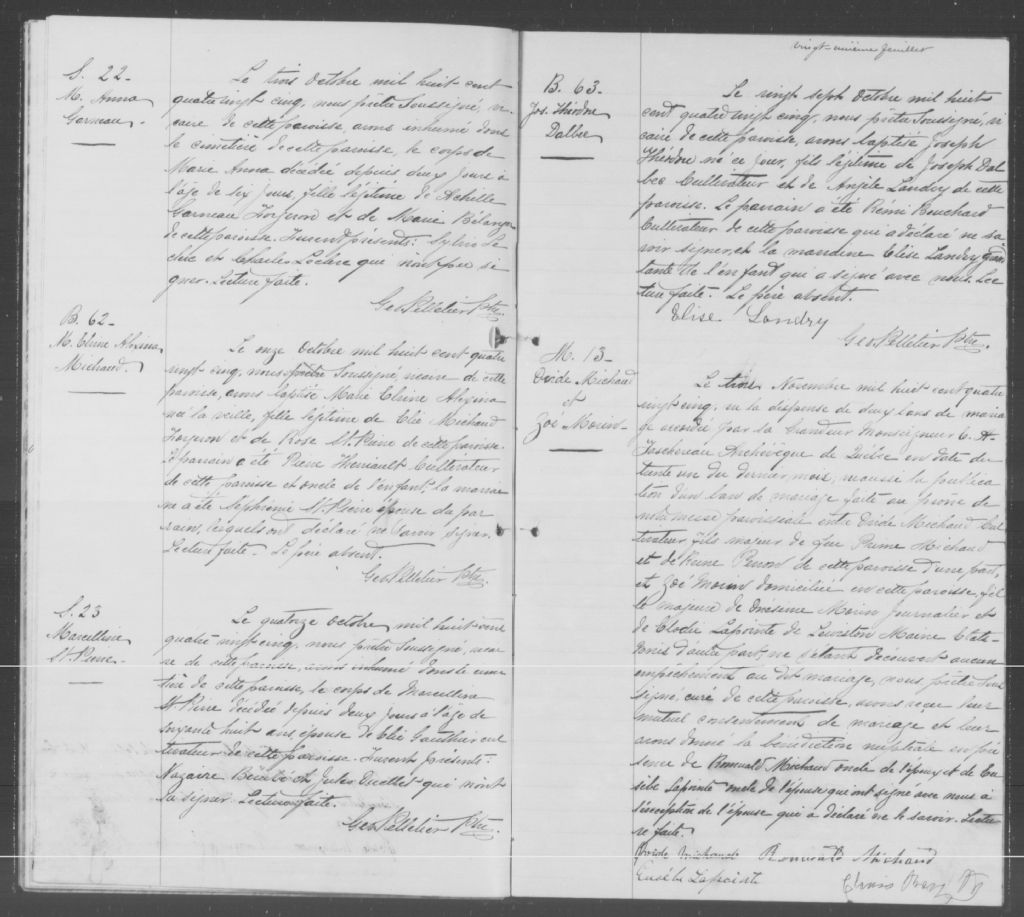 S. 22
M. Anna
Garneau
Le trois Octobre mil huit cent
quatre vingt cinq, nous prêtre soussigné, vi
caire de cette paroisse, avons inhumé dans
le cimetière de cette paroisse, le corps de
Marie Anna décédée depuis deux jours à
l'âge de six jours, fille légitime de Achille
Garneau Forgeron et de Marie Bélanger
de cette paroisse. Furent présents: Sylvio Le
clerc et Charles Leclerc qui n'ont pu si
gner. Lecture faite.
Geo Pelletier Ptre
B. 62
M. Elmire
Michaud
Le onze Octobre mil huit cent quatre
vingt cinq, nous prêtre soussigné, vicaire de cette
paroisse, avons baptisé Marie Elmire
née la veille, fille légitime de Elie Michaud
Forgeron et de Rose St. Pierre de cette paroisse.
Le parrain a été Pierre Theriault Cultivateur
de cette paroisse et oncle de l'enfant, la marrai
ne a été Séphirine St. Pierre épouse du par
rain, lesquels ont déclaré ne savoir signer.
Lecture faite. Le père absent.
Geo Pelletier Ptre
S. 23
Marcelline
St. Pierre
Le quatorze Octobre mil huit cent
quatre vingt cinq, nous prêtre soussigné, vicai
re de cette paroisse, avons inhumé dans le cime
tière de cette paroisse, le corps de Marcelline
St. Pierre décédée depuis deux jours à l'âge de
soixante huit ans épouse de Elie Gauthier cul
tivateur de cette paroisse. Furent présents:
Nazaire Bérubé et Jules Ouellet qui n'ont
su signer. Lecture faite.
Geo Pelletier Ptre
vingt-unième feuillet
B. 63
Jos. Théodre
Dalbec
Le vingt sept Octobre mil huit
cent quatre vingt cinq, nous prêtre soussigné, vi
caire de cette paroisse, avons baptisé Joseph
Théodre né ce jour, fils légitime de Joseph Dal
bec Cultivateur et de Angèle Landry de cette
paroisse. Le parrain a été Rémi Bouchard
Cultivateur de cette paroisse qui a déclaré ne sa
voir signer, et la marraine Elise Landry grand
tante de l'enfant qui a signé avec nous. Lec
ture faite. Le père absent.
Elise Landry
Geo Pelletier Ptre.
M. 13
Ovide Michaud
et
Zoé Morin
Le trois Novembre mil huit cent quatre
vingt cinq, vu la dispense de deux bans de maria
ge accordée par Sa Grandeur Monseigneur E. A.
Taschereau Archévêque de Québec en date du
trente un du dernier mois, vu aussi la publica
tion d'un ban de mariage faite au prône de
notre messe paroissiale entre Ovide Michaud Cul
tivateur, fils majeur de feu Prime Michaud
et de Reine de cette paroisse d'une part,
et Zoé Morin domiciliée en cette paroisse, fil
le majeure de Onesime Morin journalier et
de Elodie Lapointe de Lewiston Maine Etats
Unis d'autre part, ne s'étant découvert aucun
empêchement au dit mariage, nous prêtre sous
signé, curé de cette paroisse, avons reçu leur
mutuel consentement de mariage et leur
avons donné la bénédiction nuptiale en pré
sence de Romuald Michaud oncle de l'époux et de Eu
sèbe Lapointe oncle de l'épouse qui ont signé avec nous à
l'exception de l'épouse qui a déclaré ne le savoir. Lectu
re faite.
Ovide Michaud Romuald Michaud
Eusèbe Lapointe